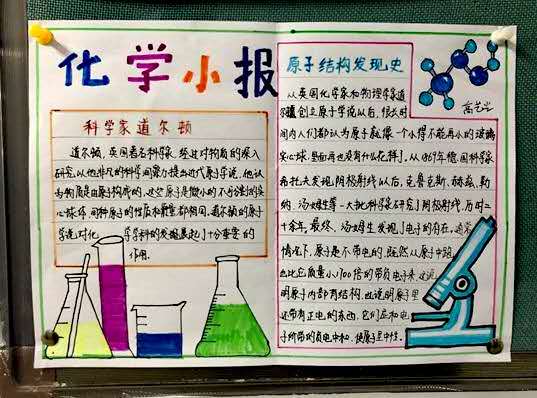 化学小报
科学家道尔顿
道尔顿，英国著名科学家，经过对物质的深入
研究，以他非凡的科学洞察力提出近代原子学说，他认
为物质是由原子构成的，这些原子是微小的不可分割的实
心球体，同种原子的性质和质量都相同，道尔顿的原子
学说对化学学科的发展起了十分重要的
作用。
原子结构发现史
从英国化学家和物理学家道
尔顿创立原子学说以后，很长时
间内人们都认为原子就像一个小得不能再小的玻璃
实心球，里面再也没有什么花样了，从1869年德国科学家
希托夫发现阴极射线以后，克鲁克斯、赫兹、勒
纳、汤姆生等一大批科学家研究了阴极射线，历时二
十余年，最终，汤姆生发现了电子的存在，通常
情况下，原子是不带电的，既然从原子中跑
出比它质量小1700倍的带负电子来，这说
明原子内部有结构，也说明原子里
还带有正电的东西，它们应和电
子所带的负电中和，使原子呈中性。